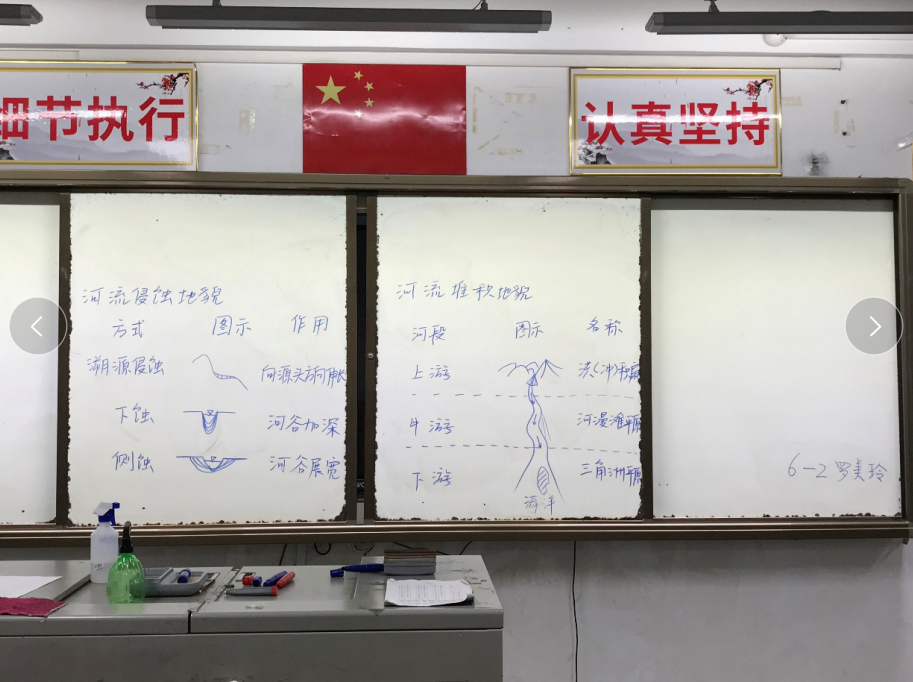 细节执行
认真坚持
河流侵蚀地貌
方式 图示 作用
溯源侵蚀 向源头方向伸长
下蚀 河谷加深
侧蚀 河谷展宽
河流堆积地貌
河段 图示 名称
上游 洪(冲)积扇
牛游 河漫滩平原
下游 三角洲平原
海洋
6-2罗美玲